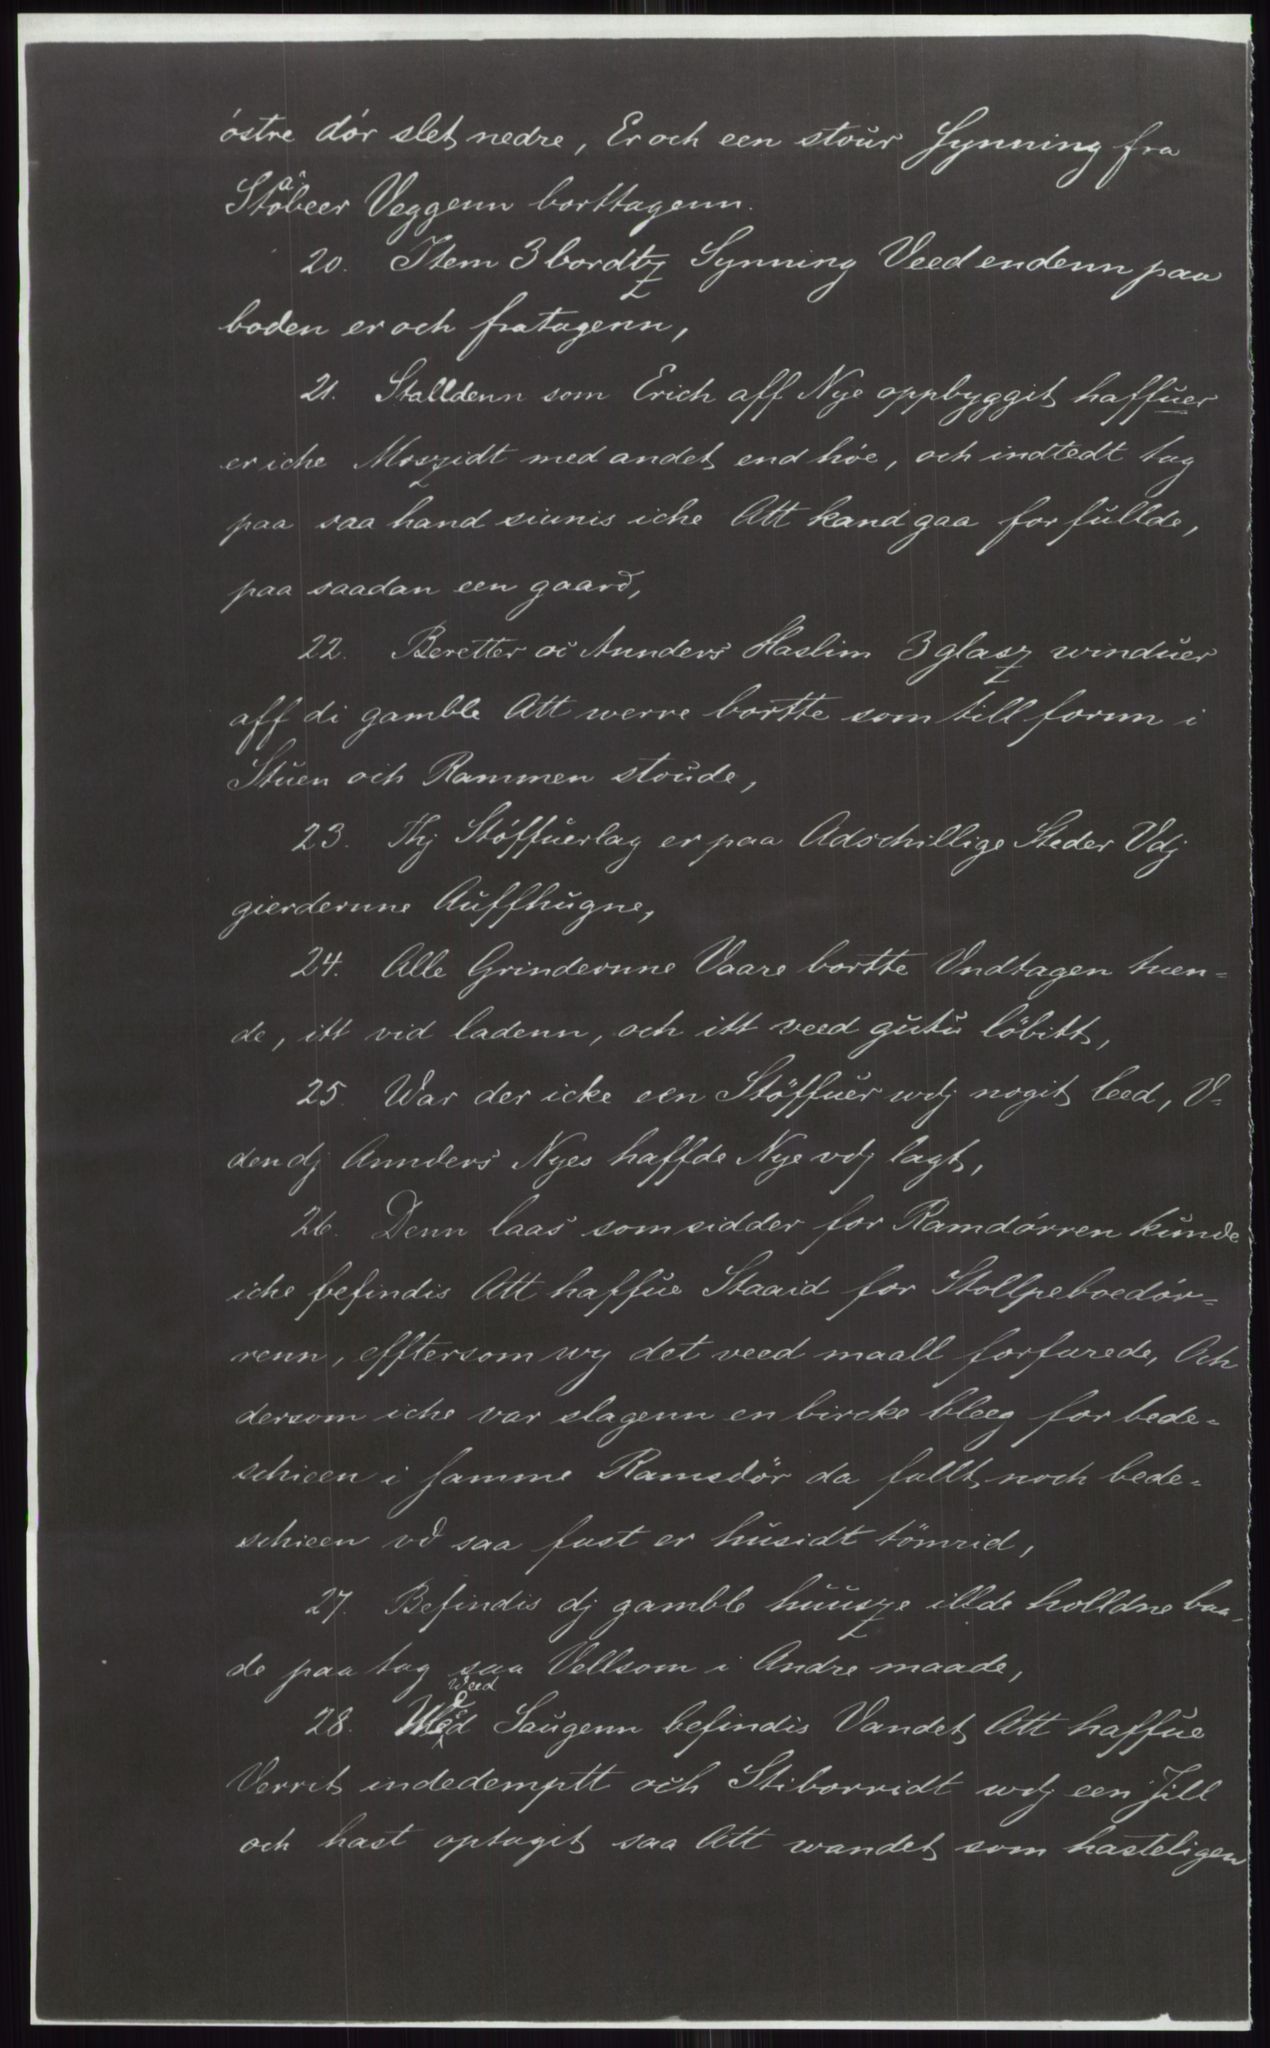 östre dör slet nedre, Er och een stour Synning fra
Stabeer Veggenn borttagenn.
20. Item 3 bordtz Synning Veed endenn paa
boden er och fratagenn,
21. Stalldenn som Erich aff Nye oppbyggit haffuer
er iche Moszidt med andet end höe, och indtedt tag
paa saa hand siunis iche Att kand gaa for fullde,
paa saadan een gaard,
22. Beretter oc Annders Haslim 3 glasz winduer
aff di gamble Att werre bortte som till fornn i
Stuen och Rammen stoude,
23. Thj Stöffuerlag er paa Adschillige Steder Vdj
gierdernne Auffhugne,
24. Alle Grindernne Vaare bortte Vndtagen tuen=
de, itt vid ladenn, och itt veed gutu löbitt,
25. War der icke een Stöffuer wdj nogit leed, V=
den dj Annders Nyes haffde Nye vdj lagt,
26. Denn laas som sidder for Ramdörren kunde
iche befindis Att haffue Staaid for Stollpeboedör=
renn, efftersom wy det veed maall forfarede, Och
dersom iche var slagenn en bircke bleeg for bede=
schieen i samme Ramsdör da fallt noch bede=
schieen vd saa fast er husidt tömrid,
27. Befindis dj gamble huusze illde holldne baa=
de paa tag saa Vellsom i Andre maade,
28. Veed Saugenn befindis Vandet Att haffue
Verrit indedemptt och Stiborridt wdj een Jill
och hast optagit saa Att wandet som hasteligen